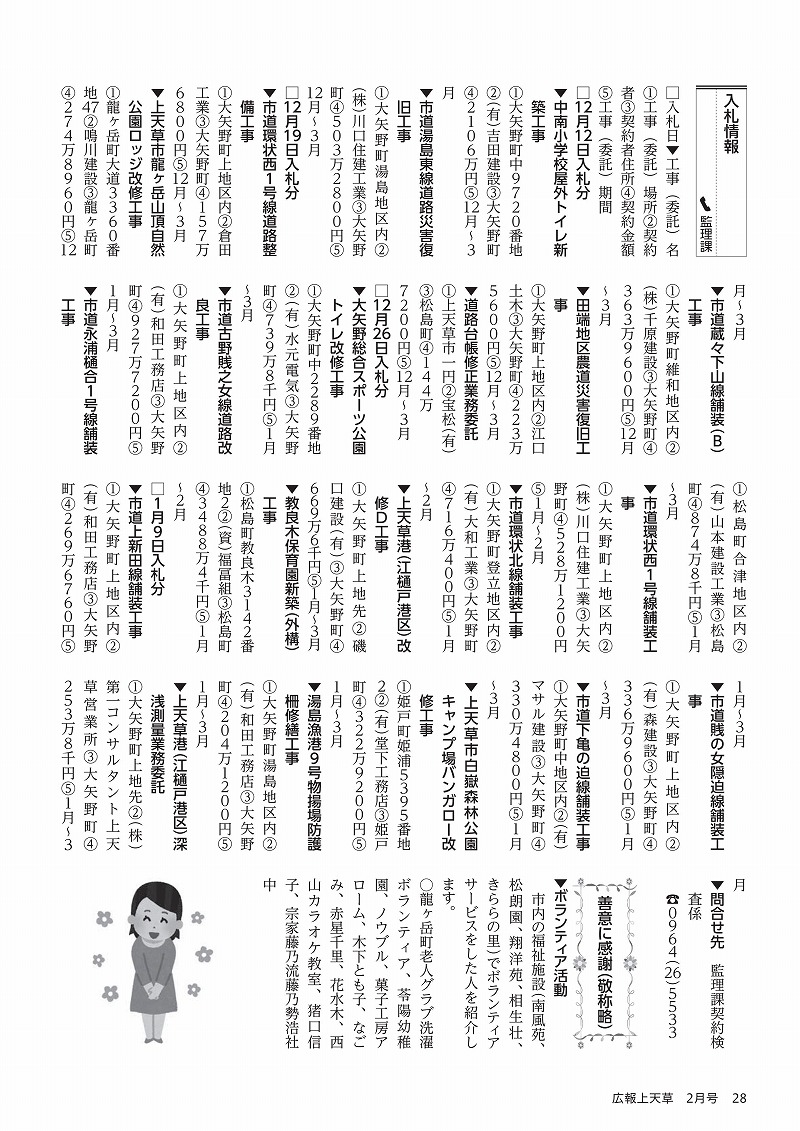 入札情報
監理課
□入札日▼工事（委託）名
①工事（委託）場所②契約
者③契約者住所④契約金額
⑤工事（委託）期間
□12月12日入札分
▼中南小学校屋外トイレ新
築工事
①大矢野町中9720番地
②(有)吉田建設③大矢野町
④2106万円⑤12月～3
月
▼市道湯島東線道路災害復
旧工事
①大矢野町湯島地区内②
(株)川口住建工業③大矢野
町④503万2800円⑤
12月～3月
□12月19日入札分
▼市道環状西1号線道路整
備工事
①大矢野町上地区内②倉田
工業③大矢野町④157万
6800円⑤12月～3月
▼上天草市龍ヶ岳山頂自然
公園ロッジ改修工事
①龍ヶ岳町大道3360番
地47②鳴川建設③龍ヶ岳町
④274万8960円⑤12
月～3月
▼市道蔵々下山線舗装（B）
工事
①大矢野町維和地区内②
(株)千原建設③大矢野町④
363万9600円⑤12月
～3月
▼田端地区農道災害復旧工
事
①大矢野町上地区内②江口
土木③大矢野町④223万
5600円⑤12月～3月
▼道路台帳修正業務委託
①上天草市一円②宝松(有)
③松島町④144万
7200円⑤12月～3月
□12月26日入札分
▼大矢野総合スポーツ公園
トイレ改修工事
①大矢野町中2289番地
②(有)水元電気③大矢野
町④739万8千円⑤1月
～3月
▼市道古野賎之女線道路改
良工事
①大矢野町上地区内②
(有)和田工務店③大矢野
町④927万7200円⑤
1月～3月
▼市道永浦樋合1号線舗装
工事
①松島町合津地区内②
(有)山本建設工業③松島
町④874万8千円⑤1月
～3月
▼市道環状西1号線舗装工
事
①大矢野町上地区内②
(株)川口住建工業③大矢
野町④528万1200円
⑤1月～2月
▼市道環状北線舗装工事
①大矢野町登立地区内②
(有)大和工業③大矢野町
④716万400円⑤1月
～2月
▼上天草港（江樋戸港区）改
修D工事
①大矢野町上地先②磯
口建設(有)③大矢野町④
669万6千円⑤1月～3月
▼教良木保育園新築（外構）
工事
①松島町教良木3142番
地2②(資)福冨組③松島町
④3488万4千円⑤1月
～2月
□1月9日入札分
▼市道上新田線舗装工事
①大矢野町上地区内②
(有)和田工務店③大矢野
町④269万6760円⑤
1月～3月
▼市道賎の女隠迫線舗装工
事
①大矢野町上地区内②
(有)森建設③大矢野町④
336万9600円⑤1月
～3月
▼市道下亀の迫線舗装工事
①大矢野町中地区内②(有)
マサル建設③大矢野町④
330万4800円⑤1月
～3月
▼上天草市白嶽森林公園
キャンプ場バンガロー改
修工事
①姫戸町姫浦5395番地
2②(有)堂下工務店③姫戸
町④322万9200円⑤
1月～3月
▼湯島漁港9号物揚場防護
柵修繕工事
①大矢野町湯島地区内②
(有)和田工務店③大矢野
町④204万1200円⑤
1月～3月
▼上天草港（江樋戸港区）深
浅測量業務委託
①大矢野町上地先②(株)
第一コンサルタント上天
草営業所③大矢野町④
253万8千円⑤1月～3
月
▼問合せ先　監理課契約検
査係
☎0964(26)5533
善意に感謝（敬称略）
▼ボランティア活動
市内の福祉施設（南風苑、
松朗園、翔洋苑、相生壮、
きららの里）でボランティア
サービスをした人を紹介し
ます。
○龍ヶ岳町老人クラブ洗濯
ボランティア、苓陽幼稚
園、ノウブル、菓子工房ア
ローム、木下とも子、なご
み、赤星千里、花水木、西
山カラオケ教室、猪口信
子、宗家藤乃流藤乃勢浩社
中
広報上天草　2月号　28